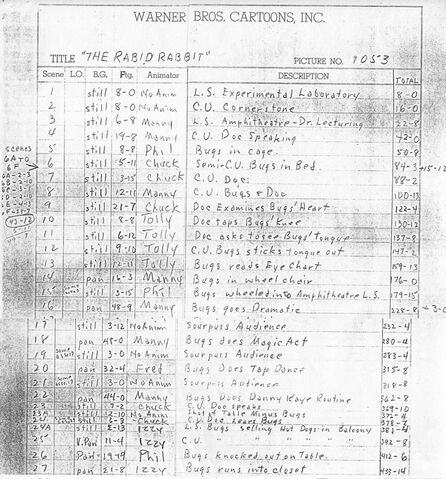 WARNER BROS. CARTOONS, INC.
TITLE "THE RABID RABBIT" PICTURE NO. 1053
Scene L.O. B.G. Ftg. Animator DESCRIPTION TOTAL
1 still 8-0 No Anim L.S. Experimental Laboratory 8-0
2 still 8-0 No Anim C.U. Cornerstone 16-0
3 still 6-8 Manny L.S. Amphitheatre-Dr. Lecturing 22-8
4 still 19-8 Manny C.U. Doc Speaking 42-0
5 still 8-8 Phil Bugs in cage 50-8
6 still 5-11 Chuck Semi-C.U. Bugs in Bed 84-3
7 still 3-15 Chuck C.U. Doc 88-2
8 still 12-11 Manny C.U. Bugs & Doc 100-13
9 still 21-7 Chuck Doc Examines Bugs' Heart 122-4
10 still 8-8 Tolly Doc taps Bugs' Knee 130-12
11 still 6-12 Tolly Doc asks to see Bugs' Tongue 137-8
12 still 9-10 Tolly C.U. Bugs sticks tongue out 147-2
13 still 12-11 Tolly Bugs reads Eye Chart 159-13
14 pan 16-3 Manny Bugs in wheel chair 176-0
15 still 3-15 Phil Bugs wheeled into Amphitheatre L.S. 179-15
16 pan 48-9 Manny Bugs goes Dramatic 228-8
17 still 3-12 No Anim Sourpuss Audience 232-4
18 pan 48-0 Manny Bugs does Magic Act 280-4
19 still 3-0 No Anim Sourpuss Audience 283-4
20 pan 32-4 Fred Bugs Does Tap Dance 315-8
21 still 3-0 No Anim Sourpuss Audience 318-8
22 pan 44-0 Manny Bugs Does Danny Kaye Routine 362-8
23 still 7-2 Chuck C.U. Doc speaks 369-10
23A still 2-10 No Anim Table Minus Bugs 372-4
still Chuck C.U. Doc Bugs
24A still 2-13 Izzy L.S. Bugs selling Hot Dogs in Balcony
25 V.Pan 11-4 Izzy C.U. " " " " 392-8
26 Pan 19-14 Phil Bugs knocked out on Table 412-6
27 pan 21-8 Izzy Bugs runs into closet
scenes
6A TO
6F